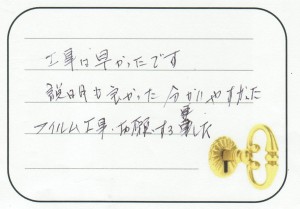 工事は早かったです
説明も良かった 分かりやすかった
フイルム工事、お願いする事した